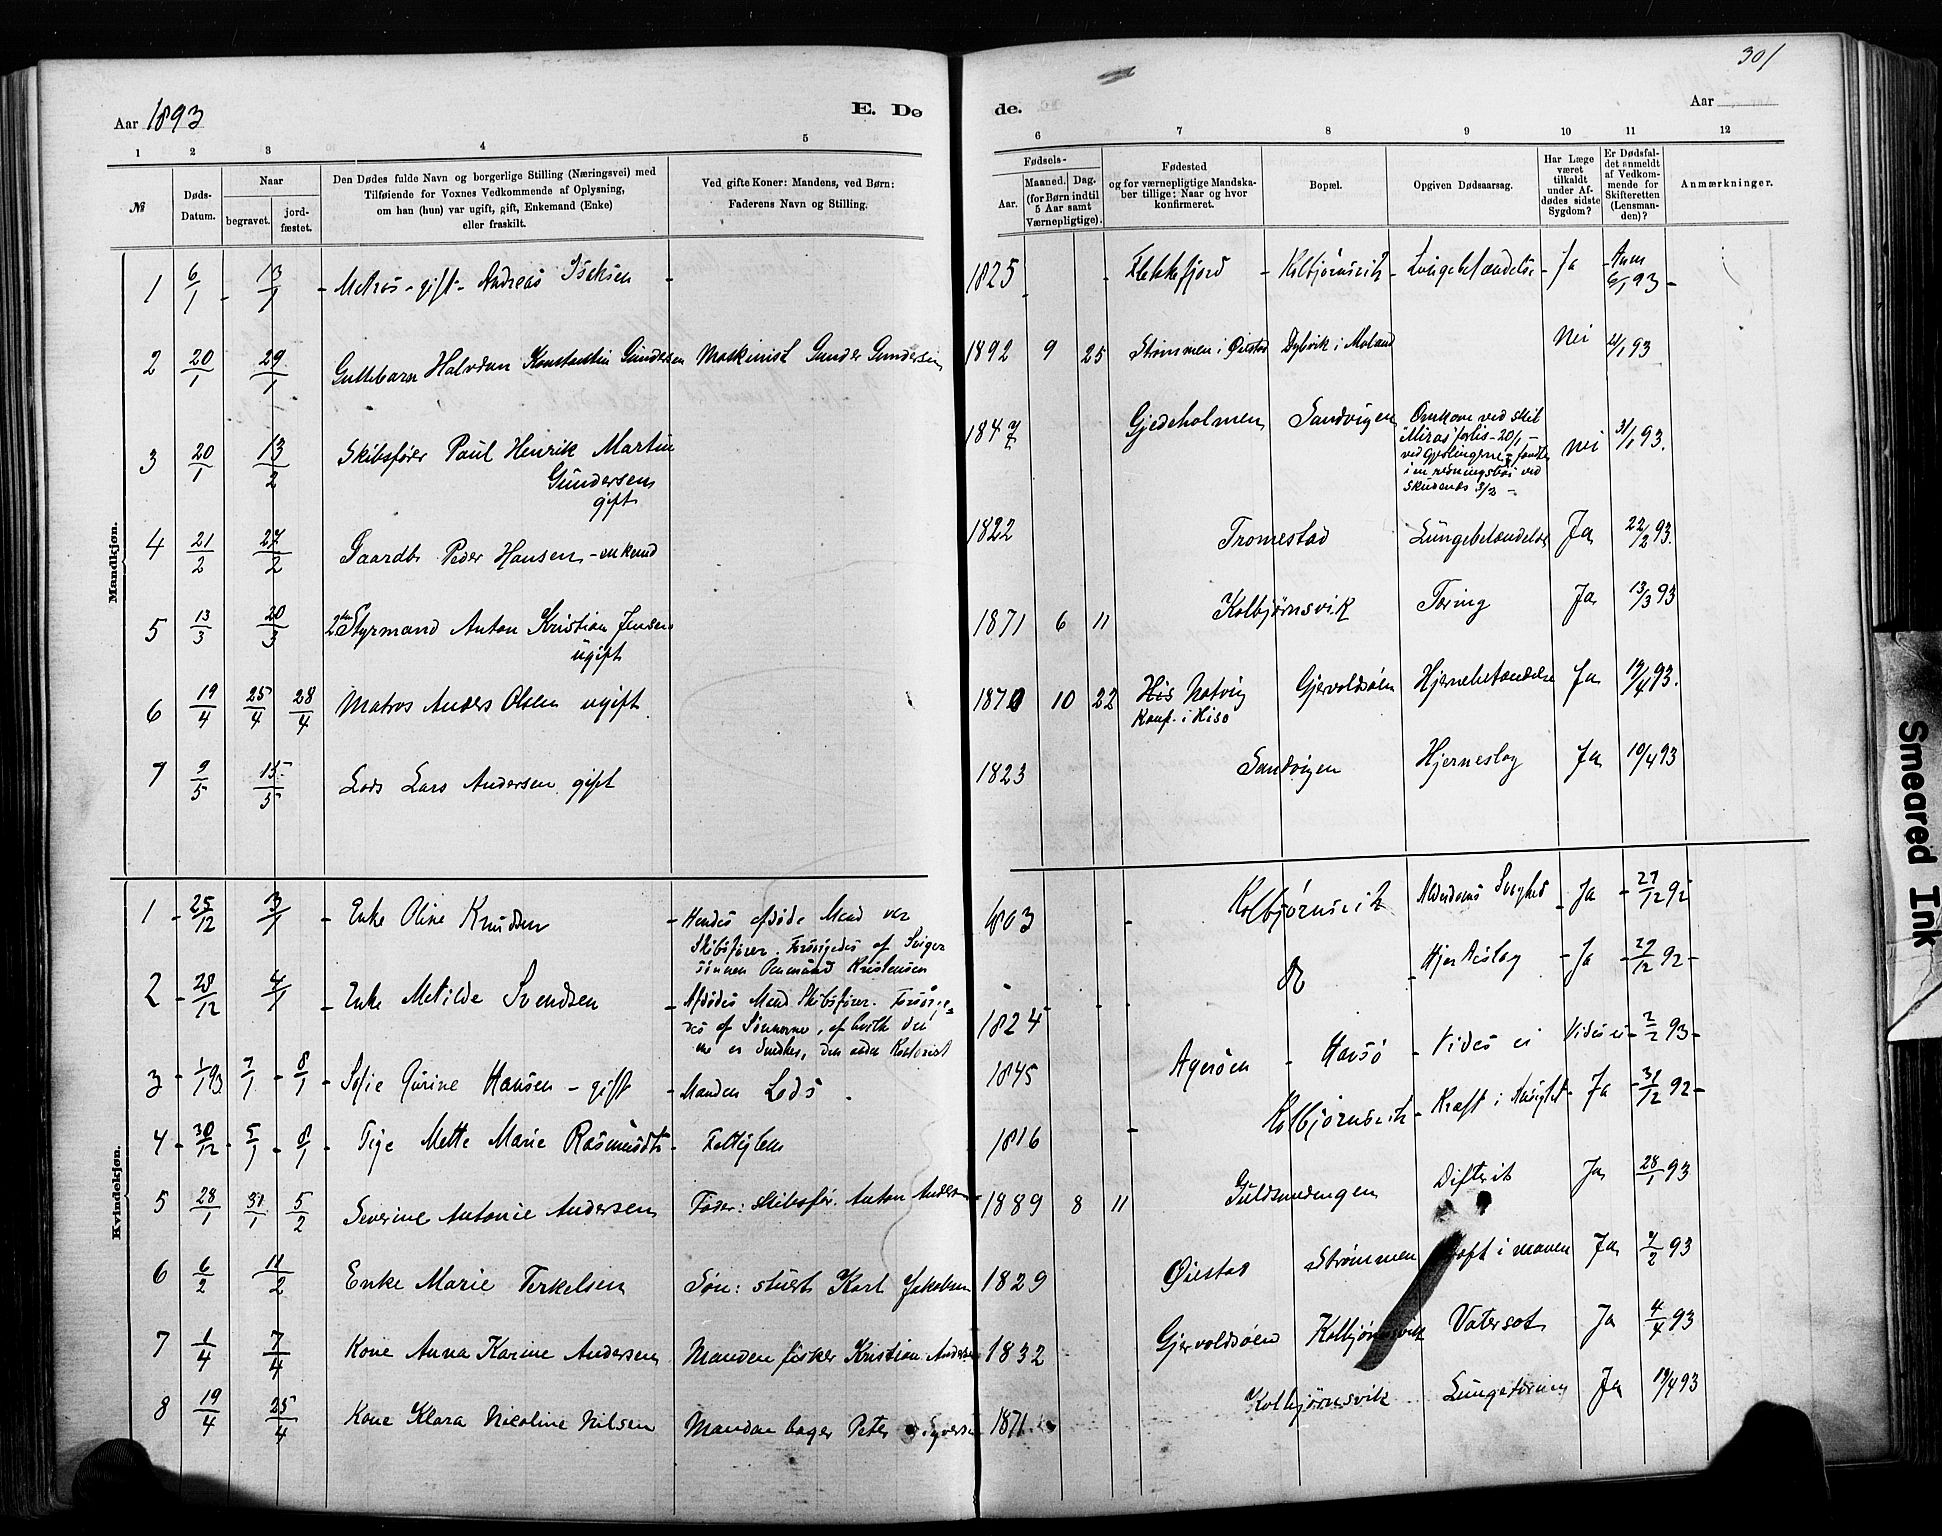 301
Aar 1893
E. Dø
de.
Aar
1 2 3 4 5
6 7 8 9 10 11 12
№
Døds-
Datum.
Naar
begravet.
jord-
fæstet.
Den Dødes fulde Navn og borgerlige Stilling (Næringsvei) med
Tilføiende for Voxnes Vedkommende af Oplysning,
om han (hun) var ugift, gift, Enkemand (Enke)
eller fraskilt.
Ved gifte Koner: Mandens, ved Børn:
Faderens Navn og Stilling.
Fødsels-
Aar.
Maaned. Dag.
(for Børn indtil
5 Aar samt
Værnepligtige).
Fødested
og for værnepligtige Mandska-
ber tillige: Naar og hvor
konfirmeret.
Bopæl.
Opgiven Dødsaarsag.
Har Læge
været
tilkaldt
under Af-
dødes sidste
Sygdom?
Er Dødsfal-
det anmeldt
af Vedkom-
mende for
Skifteretten
(Lensman-
den)?
Anmærkninger.
Mandkjøn.
1 6/1 - 13/1 - Matros - gift - Andreas Iseksen - 1825 - - Flekkefjord - Kolbjørnsvik - Lungebetændelse - Ja - Anm 6/1 93 -
2 20/1 29/1 Guttebarn Halvdan Konstantin Gundersen Maskinist Gunder Gundersen 1892 9 25 Strømmen i Øiestad Dybvik i Moland Nei 21/1 93
3 20/1 13/2 Skibsfører Paul Henrik Martin
Gundersen
gift
1847 Gjedeholmen Sandvigen Omkom ved skib
"Miras" forlis - 20/1 -
ved Gjeslingerne - fandtes
i en redningsbøi ved
Skudenæs 3/2 -
Nei 31/1 93.
4 21/2 27/2 Gaardbr Peder Hansen - enkemd 1822 Tromestad Lungebetændelse Ja 22/2 93.
5 13/3 20/3 2den Styrmand Anton Kristian Jensen
ugift
1871 6 11 Kolbjørnsvik Tæring Ja 13/3 93
6 19/4 25/4 28/4 Matros Anders Olsen ugift 1870 10 22 His Natvig
Konf. i Hisø
Gjervoldsøen Hjernebetændelse Ja 19/4 93.
7 9/5 15/5 Lods Lars Andersen gift 1823 Sandvigen Hjerneslag Ja 10/4 93
Kvindekjøn.
1 - 25/12 3/1 - Enke Oline Knudsen - Hendes afdøde Mand var
Skibsfører. Forsørgedes af Sviger
sønnen Omund Kristensen
1803 - Kolbjørnsvik Alderdoms Svaghed - Ja - 27/12 92
2 - 28/12 4/1 - Enke Metilde Svendsen - Afdødes Mand Skibsfører. Forsørge=
des af Sønnerne, af hvilk den
ene er Snedker, den anden Kontorist
1824 - - Do - Hjerneslag - Ja - 29/12 92 -
3 - 1/1 93 7/1 - 8/1 - Sofie Gurine Hansen - gift - Manden Lods. 1845 Agerøen - Havsø - Vides ei Vides ei - 2/2 93 -
4 - 30/12 - 5/1 - 8/1 - Pige Mette Marie Rasmusdtr - Fattiglem 1816 - Kolbjørnsvik - Kræft i Ansigtet - Ja - 31/12 92 -
5 28/1 31/1 5/2 Severine Antonie Andersen Fader: skibsfør. Anton Andersen 1889 8 11 Guldsmedengen Difterit Ja 28/1 93
6 6/2 11/2 Enke Marie Terkelsen Søn: stuert Karl Jakobsen 1829 Øiestad Strømmen i maven Ja 7/2 93
7 1/4 7/4 Kone Anna Karine Andersen Manden fisker Kristian Andersen 1832 Gjervoldsøen Kolbjørnsvik Vatersot Ja 4/4 93
8 19/4 25/4 Kone Klara Nicoline Nilsen Manden bager Peter Syversen 1871 Kolbjørnsvik Lungetæring Ja 19/4 93
Smeared Ink